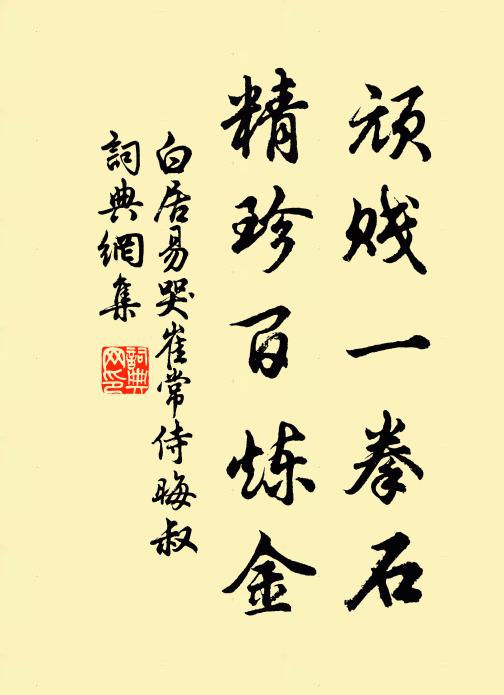 顽贱一拳石
精珍百炼金
白居易哭崔常侍晦叔
詞典網集
詞典网印